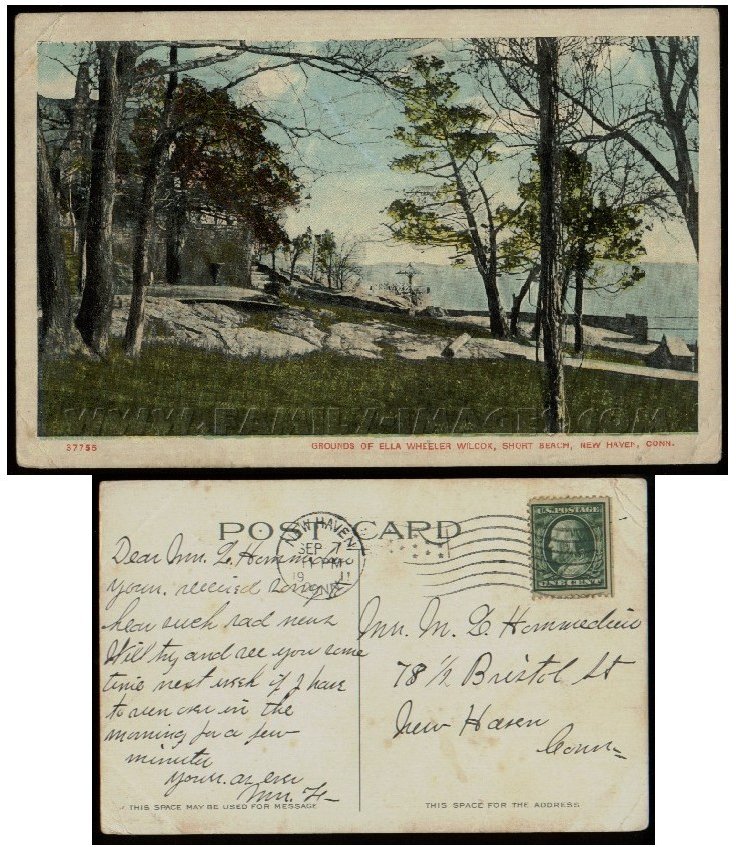 WWW.FAMILY-IMAGES.COM
37755 GROUNDS OF ELLA WHEELER WILCOX, SHORT BEACH, NEW HAVEN, CONN.
POST CARD
NEW HAVEN
SEP 7
PM
19 11
CONN
U.S. POSTAGE
ONE CENT
Dear Mrs. L'Hommedieu
yours received sorry to
hear such sad news
Will try and see you some
time next week if I have
to run over in the
morning for a few
minutes
yours as ever
Mrs. F-
THIS SPACE MAY BE USED FOR MESSAGE
Mrs. M. L'Hommedieu
78 1/2 Bristol St
New Haven
Conn-
THIS SPACE FOR THE ADDRESS